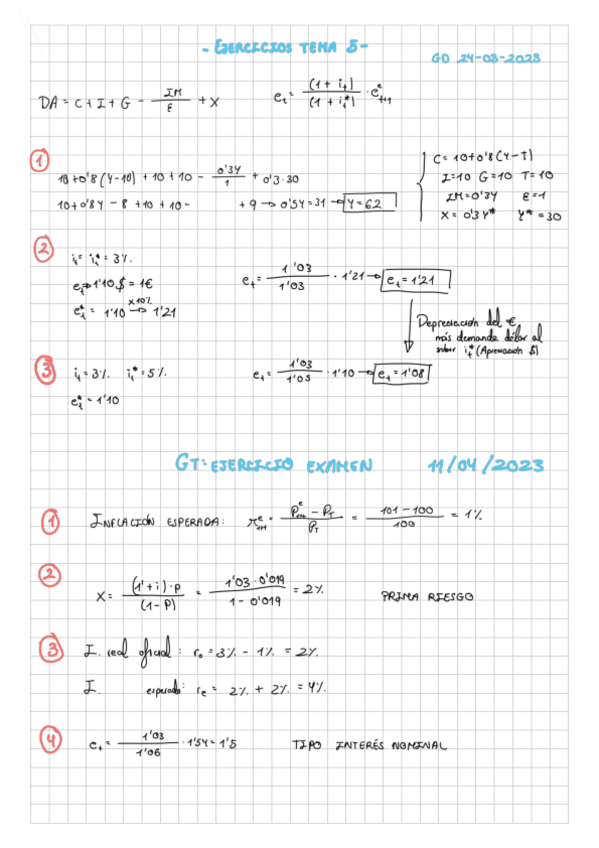 - EJERCICIOS TEMA 5 -
GD 24-03-2023
DA = C + I + G - IM/ε + X
e_t = (1 + i_t)/(1 + i_t*) · e^e_t+1
1
10+0'8(Y-10) + 10 + 10 - 0'3Y/1 + 0'3·30
10+0'8Y - 8 + 10 + 10 - + 9 → 0'5Y = 31 → Y = 62
C = 10+0'8(Y-T)
I=10 G=10 T=10
IM=0'3Y ε=1
X = 0'3Y* Y* = 30
2
i_t = i_t* = 3%.
e_t → 1'10 $ = 1€
x10%
e_t^e = 1'10 → 1'21
e_t = 1'03/1'03 · 1'21 → e_t = 1'21
Depreciación del €
más demanda dólar al
subir i_t* (Apreciación $)
3
i_t = 3%. i_t* = 5%.
e_t^e = 1'10
e_t = 1'03/1'05 · 1'10 → e_t = 1'08
GT: EJERCICIO EXAMEN 11/04/2023
1
INFLACIÓN ESPERADA: π^e_t+1 = (P^e_t+1 - P_T)/P_T = (101 - 100)/100 = 1%
2
X = (1+i)·p/(1-P) = 1'03·0'019/1-0'019 = 2%
PRIMA RIESGO
3
I. real oficial: r_o = 3% - 1% = 2%.
I. esperado: r_e = 2% + 2% = 4%.
4
e_t = 1'03/1'06 · 1'54 = 1'5 TIPO INTERÉS NOMINAL